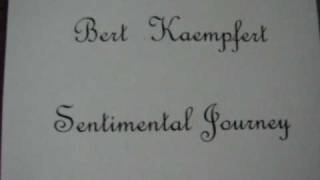 Bert Kaempfert
Sentimental Journey